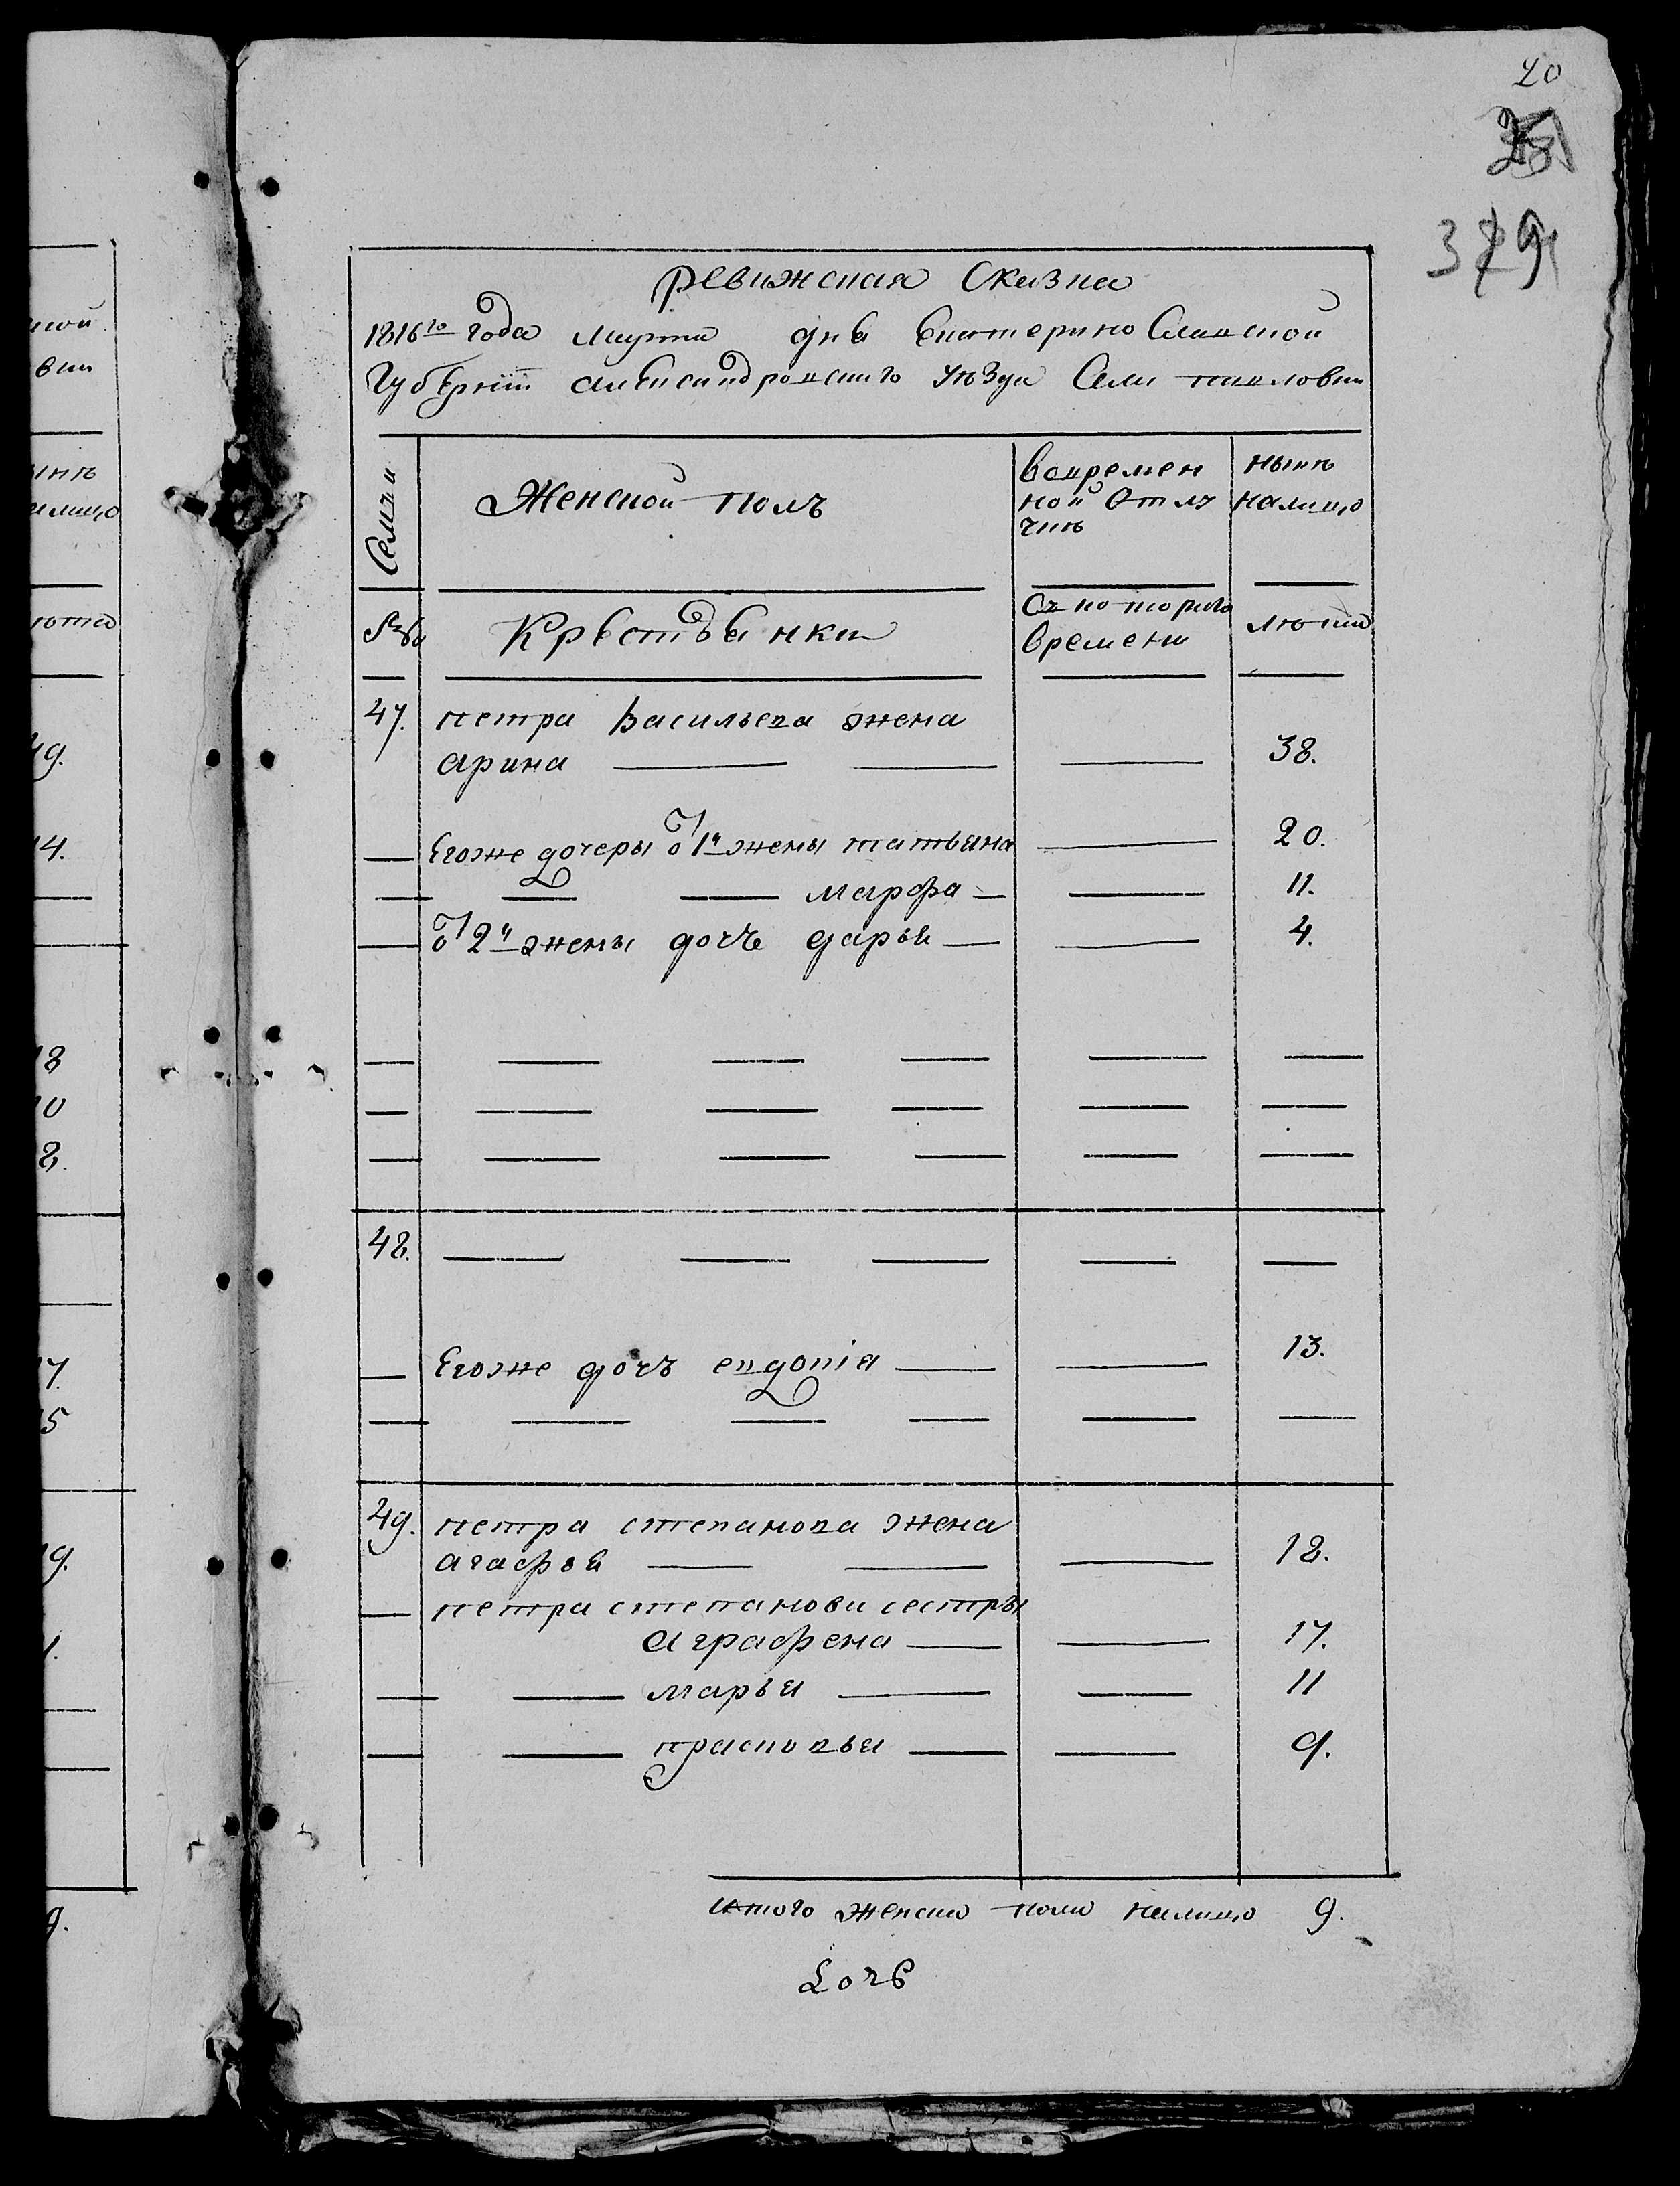 20
379
ревижская сказка
1816го года марта дня Екатеринославской
Губернiи александровскаго уезда Села павловки
Семьи
Женской полъ
вовремен
ной Отлу
чкѣ
нынѣ
налицо
№
Крестьянки
Съ которого
времени
лѣта
47. петра Васильева жена
арина 38.
Егоже дочеры от 1й жены татьяна 20.
марфа 11.
от 2й жены дочь дарья 4.
48.
Егоже дочь евдокiя 13.
49. петра степанова жена
агафья 18.
петра степанова сестры
аграфена 17.
марья 11
прасковья 9.
итого женска пола налицо 9.